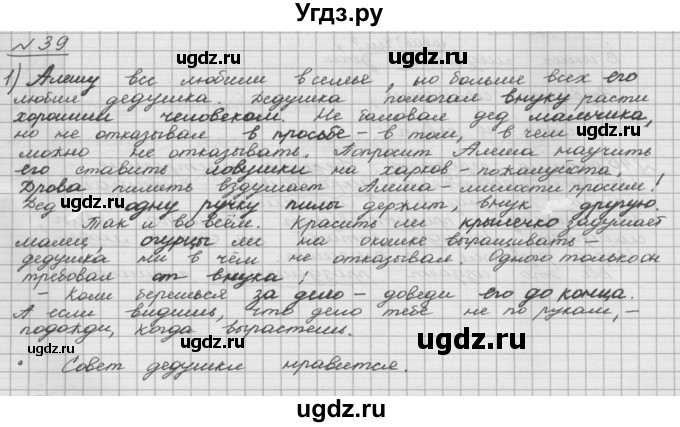 Угдз.ру
№39
1) Алешу все любили в семье, но больше всех его
любил дедушка. Дедушка помогал внуку расти
хорошим человеком. Не баловал дед мальчика,
но не отказывал в просьбе - в том, в чём
можно не отказывать. Попросит Алеша научить
его ставить ловушки на харков - пожалуйста,
Дрова пилить вздушает Алеша - милости просим!
Дед одну ручку пилы держит, внук другую.
Так и во всём. Красить ли крылечко задумает
малец, огурцы ли на окошке выращивать -
дедушка ни в чём не отказывал. Одного только он
требовал от внука:
- Коли берешься за дело - доведи его до конца.
А если видишь, что дело тебе не по рукам, -
подожди, когда вырастешь.
• Совет дедушки нравится.
ugdz.ru ugdz.ru ugdz.ru
ugdz.ru ugdz.ru
ugdz.ru ugdz.ru ugdz.ru
ugdz.ru ugdz.ru
ugdz.ru ugdz.ru ugdz.ru
ugdz.ru